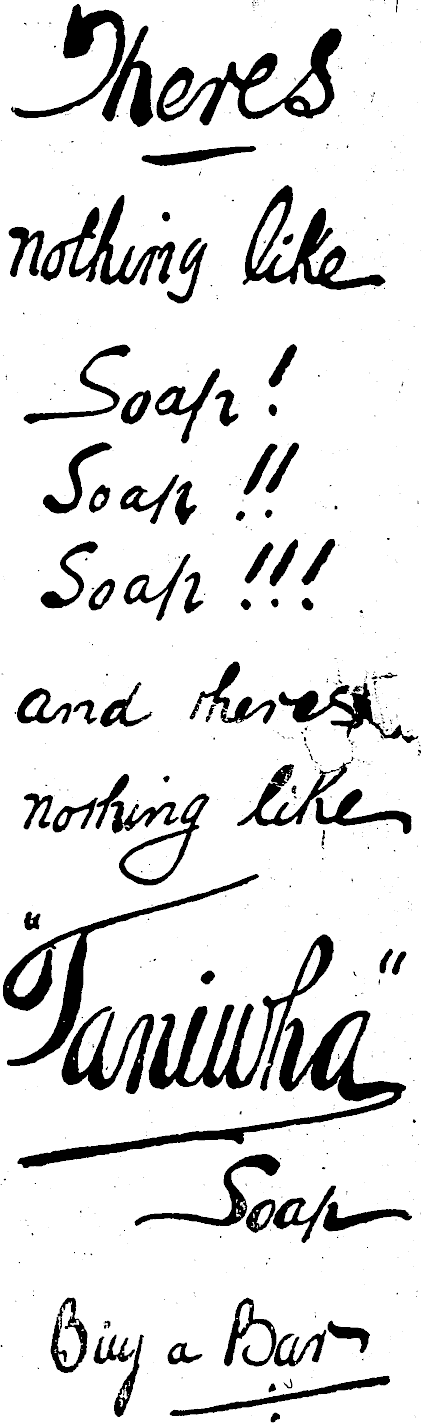 Theres
nothing like
Soap!
Soap!!
Soap!!!
and theres
nothing like
"Taniwha"
Soap
Buy a Bar